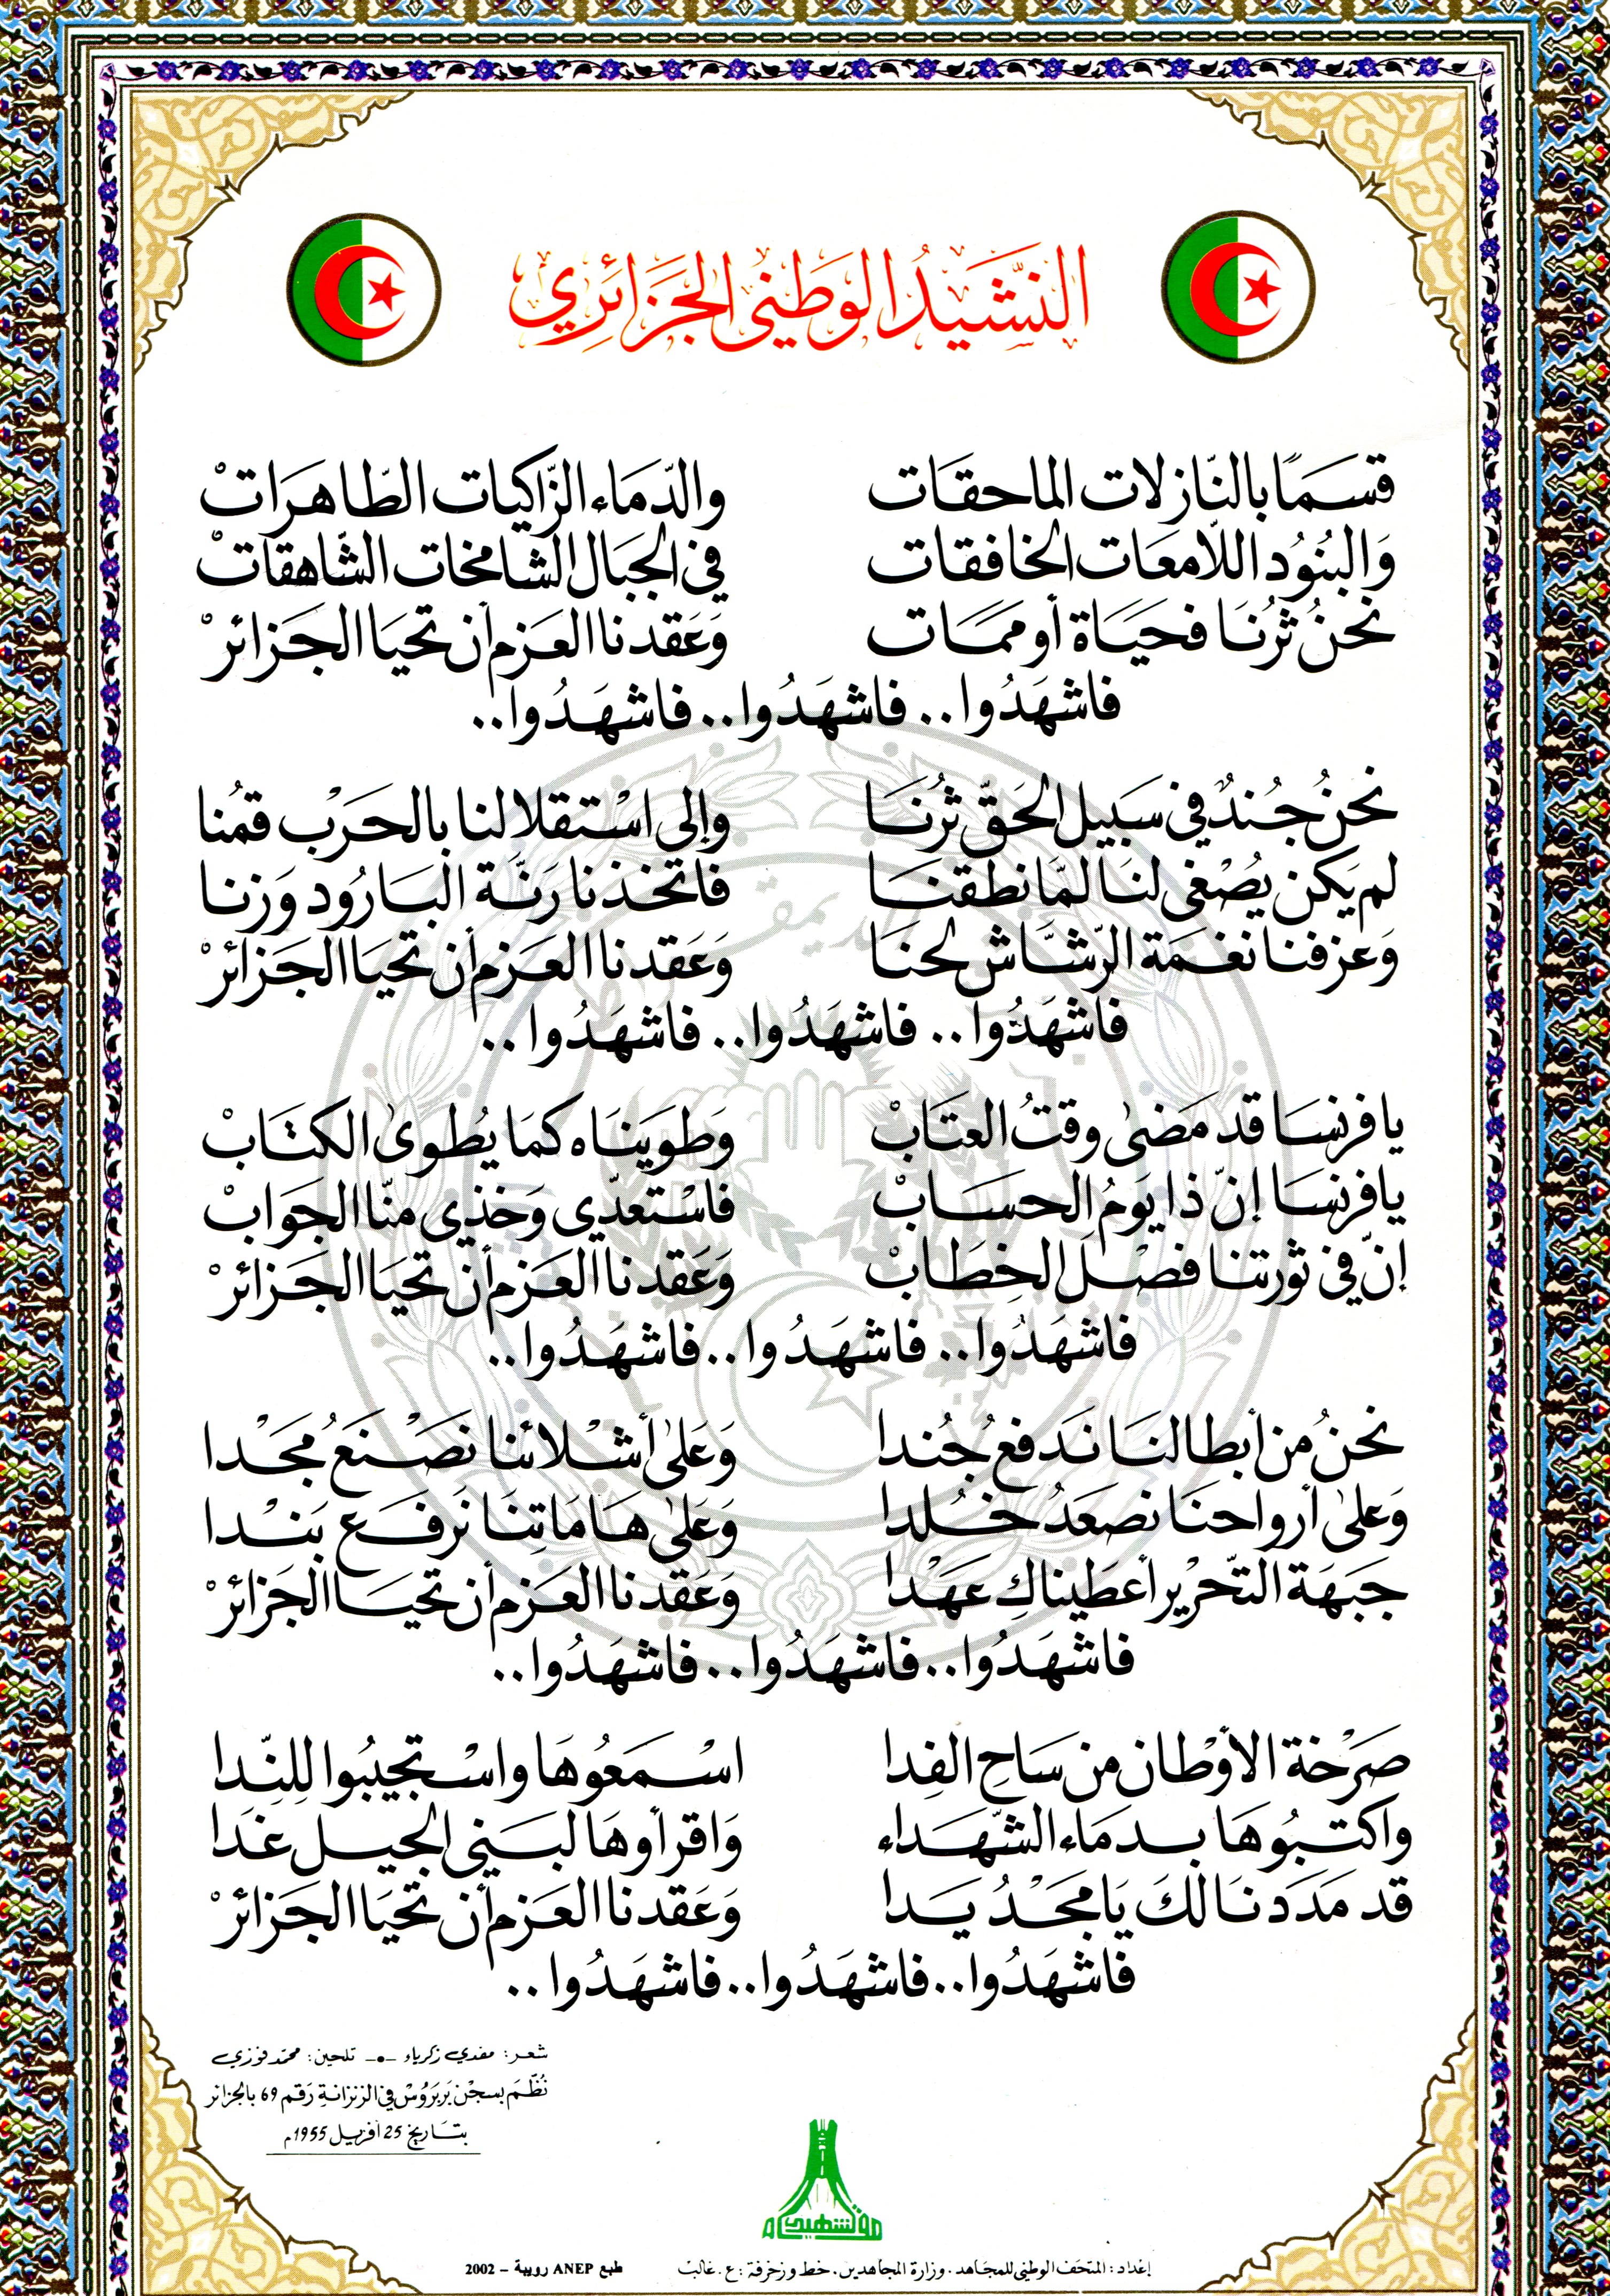 النَّشَيدُ الوَطني الجَزَائِري
قسَمًا بالنّازلات الماحقَات والدّمَاء الزّاكيات الطّاهرَاتْ
وَالبُنوُد اللّامعَات الخافقات في الجبَال الشامخات الشّاهقاتْ
نحنُ ثرُنَا فحَيَاة أو ممَات وَعَقدنا العَزم أن تحيَا الجَزائرْ
فاشهَدُوا.. فاشهَدُوا.. فاشهَدُوا..
نحنُ جُندٌ في سَبيل الحَقّ ثرُنَا وإلى اسْتقلالنا بالحَرْب قمُنا
لم يَكن يصُغى لنَا لمَّا نطقنَا فاتخذنا رَنَّة البَارُود وَزنا
وَعزفنا نغمَة الرّشَّاش لحنَا وَعَقدنا العَزم أن تحيَا الجَزائرْ
فاشهَدُوا.. فاشهَدُوا.. فاشهَدُوا..
يا فرنسَا قد مَضىٰ وقتُ العتَابْ وَطوينَاه كمَا يُطوىٰ الكتَابْ
يا فرنسَا إنّ ذا يَومُ الحسَابْ فاسْتعدّي وَخذي منّا الجَوَابْ
إنّ في ثورتنا فصْلَ الخِطَابْ وَعَقدنا العَزم أن تحيَا الجَزائرْ
فاشهَدُوا.. فاشهَدُوا.. فاشهَدُوا..
نحنُ من أبطالنَا نَدفعُ جُندا وَعَلىٰ أشْلائنا نَصْنَعُ مجَدا
وَعلىٰ أرواحنَا نصعَدُ خُلدا وَعَلىٰ هَامَاتِنَا نَرفَع بَنْدا
جَبهَة التّحْرير أعطَيناكِ عَهْدا وَعَقدنا العَزم أن تحيَا الجَزائرْ
فاشهَدُوا.. فاشهَدُوا.. فاشهَدُوا..
صَرْخة الأوْطان من سَاحِ الفِدا اسْمَعُوهَا واسْتجيبُوا للِنّدا
واكتبُوهَا بدمَاء الشّهَداء وَاقرأوهَا لبَني الجيل غَدَا
قد مَدَدنَا لكَ يَا مجَدْ يَدا وَعَقدنا العَزم أن تحيَا الجَزائرْ
فاشهَدُوا.. فاشهَدُوا.. فاشهَدُوا..
شعر: مفدي زكرياء -•- تلحين: محمّد فوزي
نُظّمَ بسجْن بَربَرُوسْ في الزنزانةِ رَقم 69 بالجزائر
بتَاريخ 25 أفريل 1955م
مقام الشهيد
إعْداد: المتحَف الوطني للمجَاهد. وزارة المجاهدين. خط وزخرفة: ع. غالب طبع ANEP رويبة - 2002